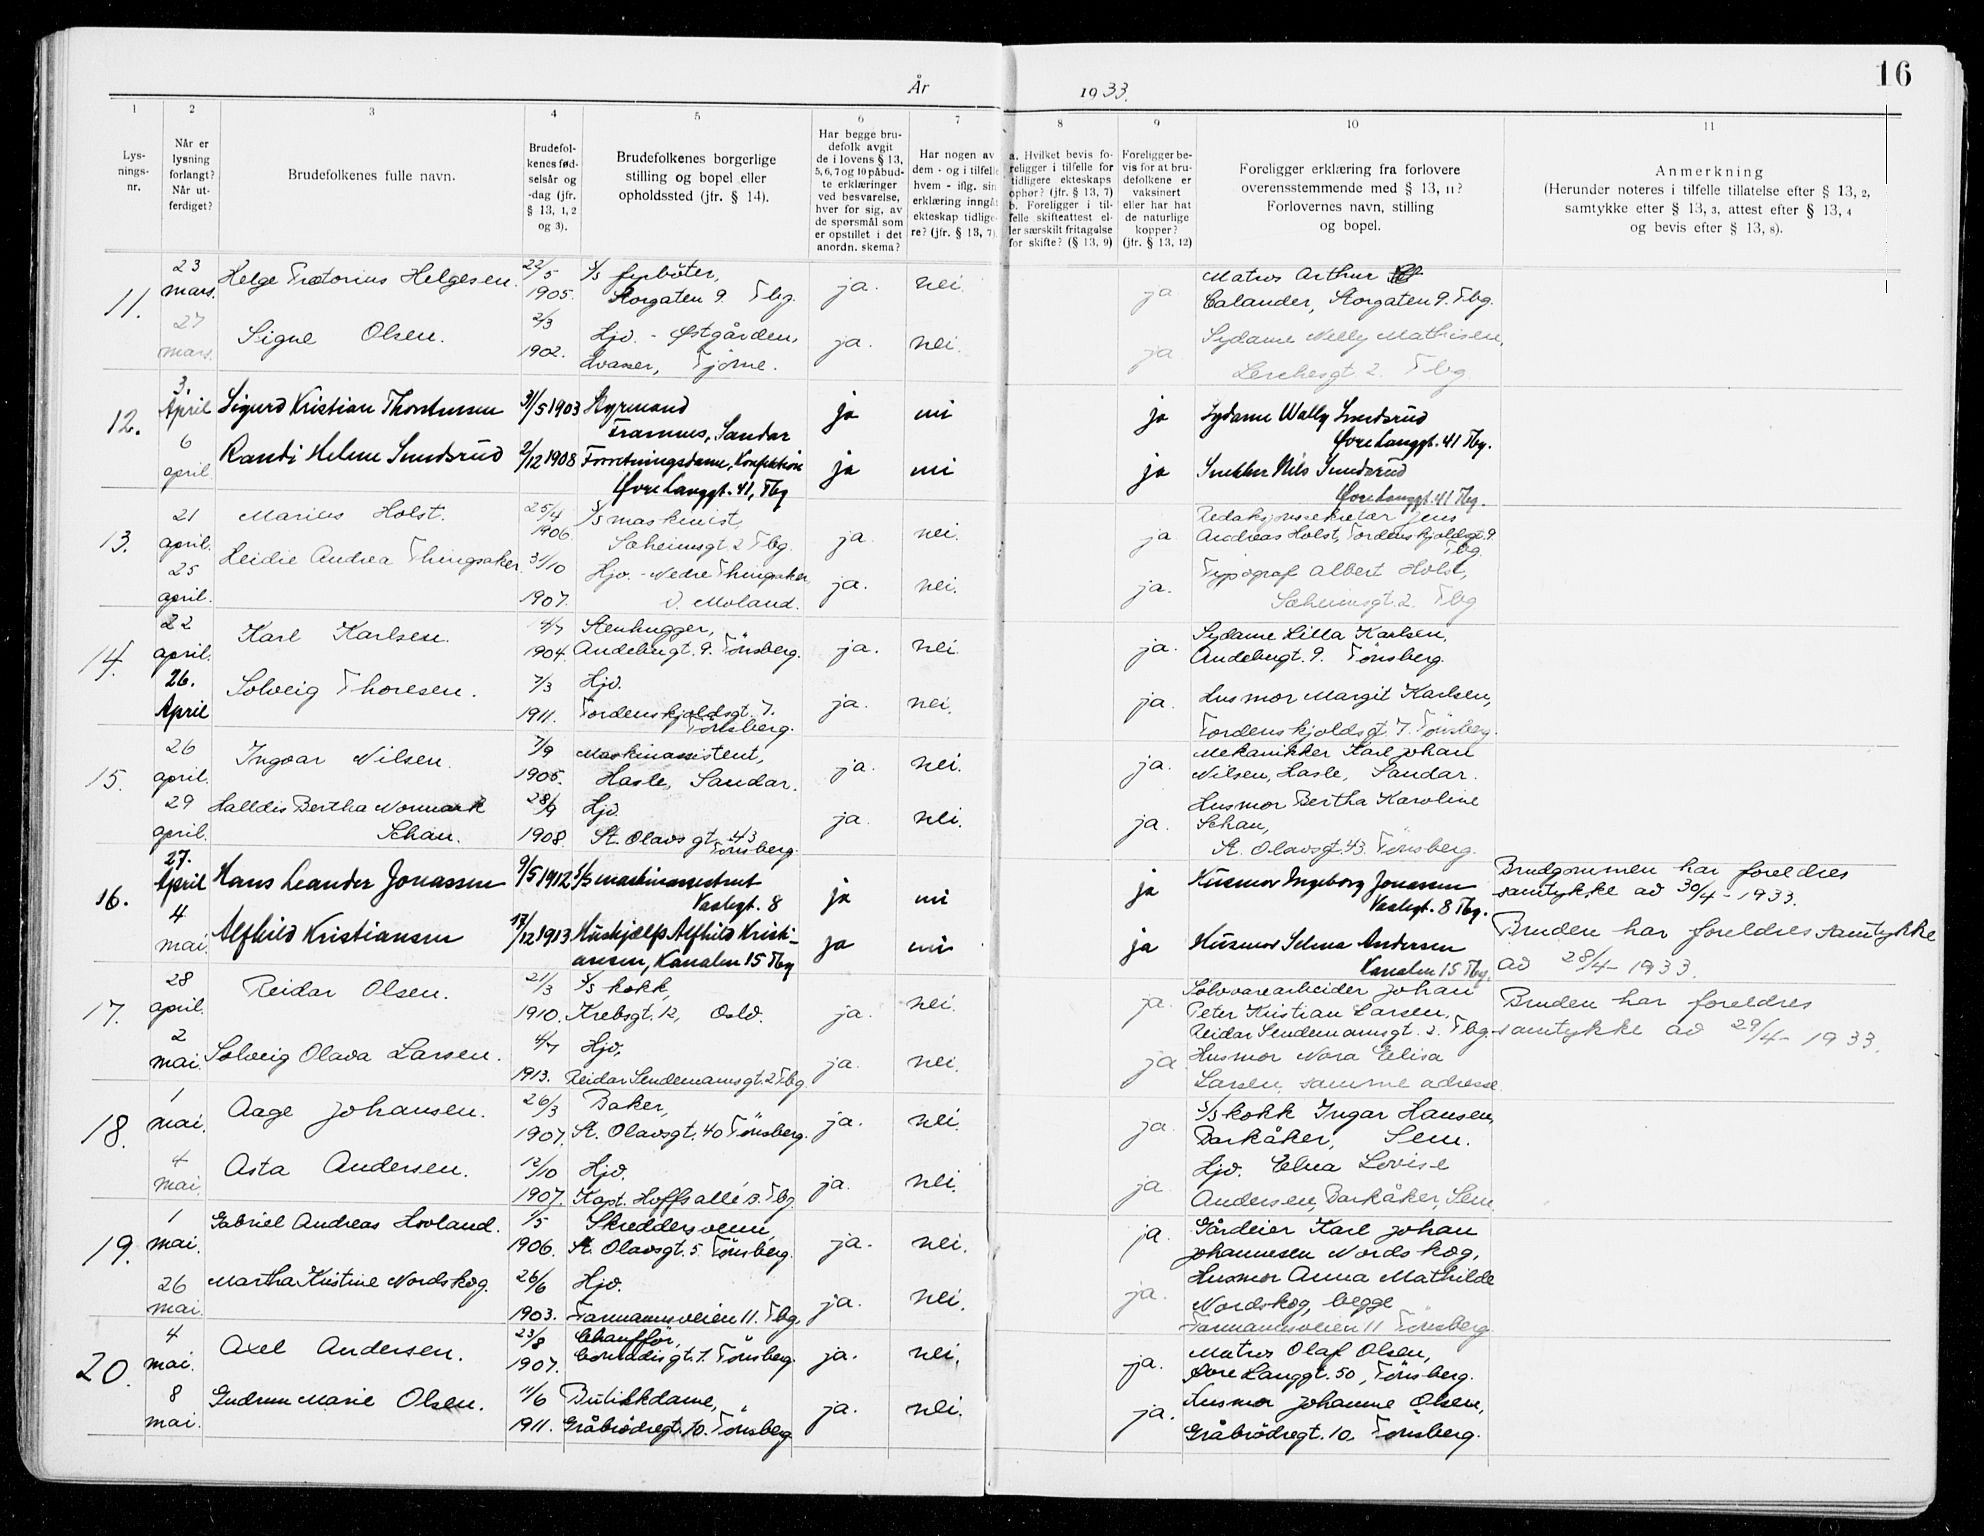 År 1933.
16
1 2 3 4 5 6 7 8 9 10 11
Lys-
nings-
nr.
Når er
lysning
forlangt?
Når ut-
ferdiget?
Brudefolkenes fulle navn.
Brudefol-
kenes fød-
selsår og
-dag (jfr.
§ 13, 1, 2
og 3).
Brudefolkenes borgerlige
stilling og bopel eller
opholdssted (jfr. § 14).
Har begge bru-
defolk avgit
de i lovens § 13,
5, 6, 7 og 10 påbud-
te erklæringer
ved besvarelse,
hver for sig, av
de spørsmål som
er opstillet i det
anordn. skema?
Har nogen av
dem - og i tilfelle
hvem - iflg. sin
erklæring inngåt
ekteskap tidlige-
re? (jfr. § 13, 7).
a. Hvilket bevis fo-
religger i tilfelle for
tidligere ekteskaps
ophør? (jfr. § 13, 7)
b. Foreligger i til-
felle skifteattest el-
ler særskilt fritagelse
for skifte? (§ 13, 9)
Foreligger be-
vis for at bru-
defolkene er
vaksinert
eller har hat
de naturlige
kopper?
(jfr. § 13, 12)
Foreligger erklæring fra forlovere
overensstemmende med § 13, 11?
Forlovernes navn, stilling
og bopel.
Anmerkning
(Herunder noteres i tilfelle tillatelse efter § 13, 2,
samtykke efter § 13, 3, attest efter § 13, 4
og bevis efter § 13, 8).
11.
23 mars. Helge Prætorius Helgesen. 22/5 1905. S/S fyrbøter,
Storgaten 9. Tbg. ja. nei. ja Matros Arthur
Calander, Storgaten 9. Tbg.
27 mars. Signe Olsen. 2/3 1902. Hjv. - Østgården,
Hvasser, Tjøme. ja. nei. ja Sydame Nelly Mathisen,
Lerchesgt. 2. Tbg.
12.
3. April Sigurd Kristian Thorstensen 31/5 1903 Styrmand
Framnes, Sandar ja nei ja Sydame Wally Sundsrud
Øvre Langgt. 41 Tbg.
6 april Randi Helene Sundsrud 2/12 1908 Forretningsdame, Konfektion
Øvre Langgt. 41, Tbg ja nei ja Snekker Nils Sundsrud
Øvre Langgt. 41 Tbg.
13.
21 april. Marius Holst. 25/4 1906 S/S maskinist,
Sæheimsgt 2 Tbg. ja. nei. ja. Redaksjonssekretær Jens
Andreas Holst, Tordenskjoldsgt. 9.
Tbg.
25 april. Heidie Andrea Thingsaker 31/10 1907. Hjv. - Nedre Thingsaker
V. Moland. ja. nei. ja. Typograf Albert Holst,
Sæheimsgt. 2. Tbg
14.
22 april. Karl Karlsen. 4/7 1904. Stenhugger,
Andebugt. 9. Tönsberg. ja. nei. ja. Sydame Lilla Karlsen,
Andebugt. 9. Tönsberg.
26. April Solveig Thoresen. 7/3 1911. Hjv.
Tordenskjoldsgt. 7.
Tönsberg. ja. nei. ja. Husmor Margit Karlsen,
Tordenskjoldsgt. 7. Tönsberg.
15.
26 april. Ingvar Nilsen. 7/9 1905. Maskinassistent,
Hasle, Sandar. ja. nei. ja. Mekanikker Karl Johan
Nilsen, Hasle, Sandar.
29 april. Halldis Bertha Nonmark
Schau. 28/9 1908. Hjv.
St. Olavs gt. 43
Tönsberg. ja. nei. ja. Husmor Bertha Karoline
Schau,
St. Olavsgt. 43. Tönsberg.
16.
27. April Hans Leander Jonassen 9/5 1912 S/S maskinassistent
Vasbgt. 8 ja nei ja Husmor Ingeborg Jonassen
Vasbgt. 8 Tbg. Brudgommen har foreldres
samtykke av 30/4 - 1933.
4 mai. Alfhild Kristiansen 17/12 1913 Hushjælp Alfhild Kristi-
ansen, Kanalen 15 Tbg ja nei ja Husmor Selma Andersen
Kanalen 15 Tbg. Bruden har foreldres samtykke
av 28/4 - 1933.
17.
28 april. Reidar Olsen. 21/3 1910. S/S kokk,
Krebsgt. 12, Oslo. ja. nei. ja. Sölvvarearbeider Johan
Peter Kristian Larsen,
Reidar Sendemannsgt. 2. Tbg. Bruden har foreldres
samtykke av 29/4 - 1933.
2 mai. Solveig Olava Larsen. 4/7 1913. Hjv.
Reidar Sendemannsgt. 2 Tbg. ja. nei. ja. Husmor Nora Elisa
Larsen, samme adresse.
18.
1 mai. Aage Johansen. 26/3 1907. Baker,
St. Olavsgt. 40 Tönsberg. ja. nei. ja. S/S kokk Ingar Hansen,
Barkåker, Sem.
4 mai. Asta Andersen. 12/10 1907. Hjv.
Kapt. Hoffs allé 13. Tbg. ja. nei. ja Hjv. Elna Lovise
Andersen, Barkåker, Sem
19.
1 mai. Gabriel Andreas Hovland. 1/5 1906. Skreddersvenn,
St. Olavsgt. 5 Tönsberg. ja. nei. ja. Gårdeier Karl Johan
Johannesen Nordskog,
26 mai. Martha Kristine Nordskog. 26/6 1903. Hjv.
Farmannsveien 11. Tbg. ja. nei. ja. Husmor Anna Mathilde
Nordskog, begge
Farmannsveien 11 Tönsberg.
20.
4 mai. Axel Andersen. 23/8 1907. Chaufför,
Conradisgt. 7. Tönsberg. ja. nei. ja. Matros Olaf Olsen,
Øvre Langgt. 50, Tönsberg.
8 mai. Gudrun Marie Olsen. 11/6 1911. Butikkdame,
Gråbrödregt. 10. Tönsberg ja. nei. ja. Husmor Johanne Olsen,
Gråbrödregt. 10, Tönsberg.